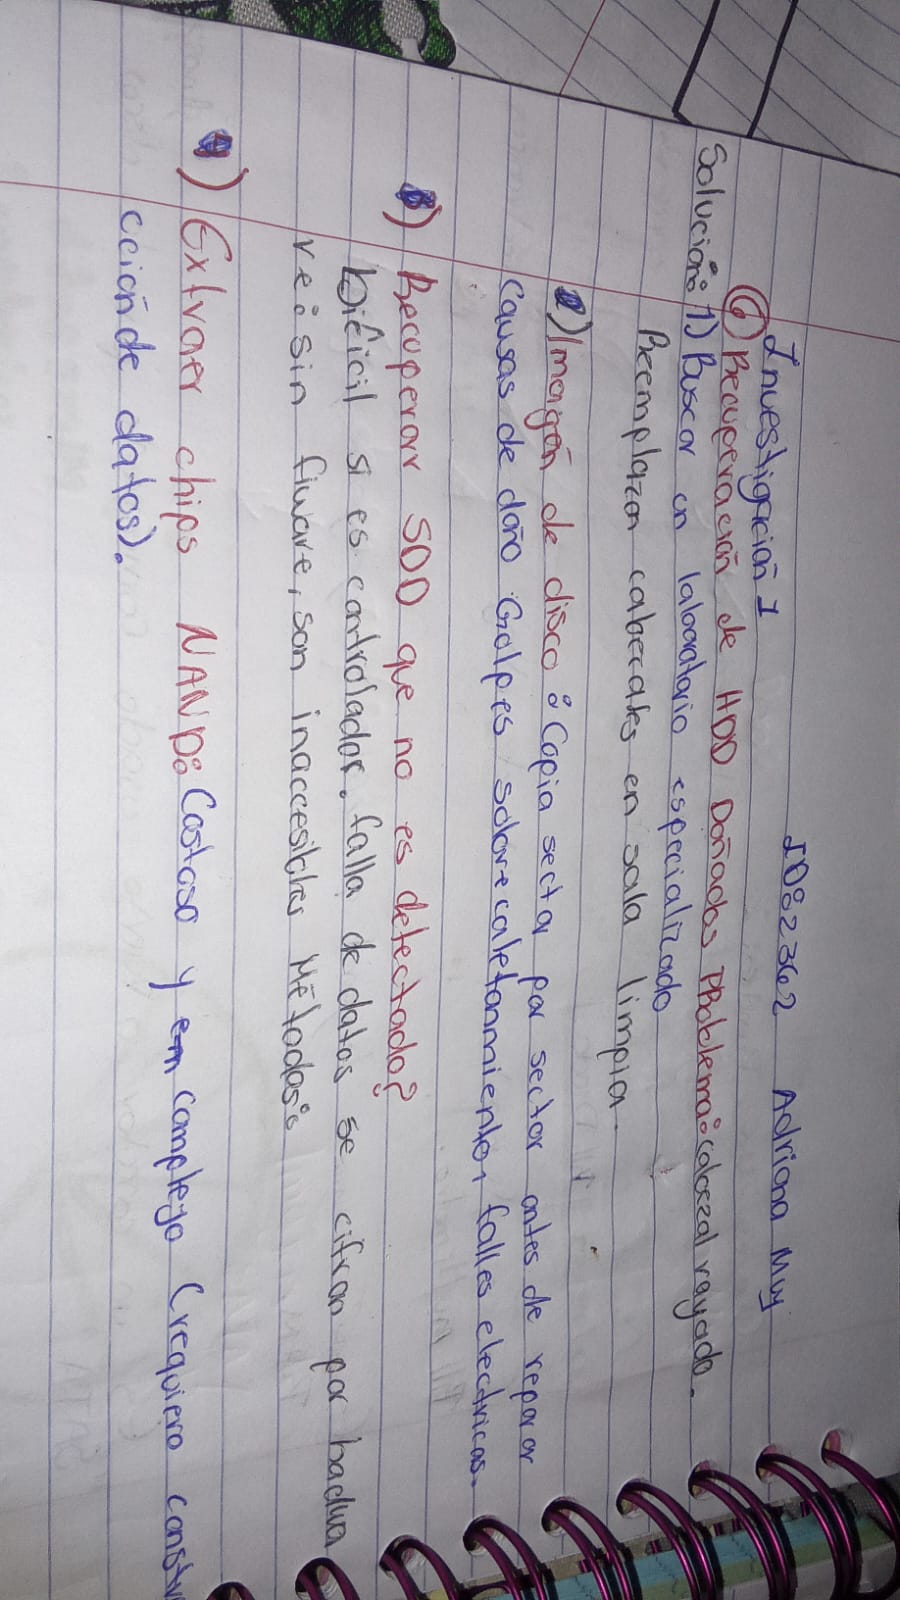 ID:2362 Adriana Muy
Investigación 1
⑥ Recuperación de HDD Dañados PRoblema: cabezal rayado.
Solución: 1) Buscar un laboratorio especializado
Reemplazan cabezales en sala limpia.
2) Imagén de disco: Copia secta por sector antes de reparar
Causas de daño Golpes sobrecaletanmiento, falles electricas.
) Recuperar SDD que no es detectado?
Dificil si es controlador. falla de datos se cifran por hadwa
re: sin fiware, son inaccesibles Métodos:
) Extraer chips NAND: Costoso y em complejo (requiero constru
cción de datos).